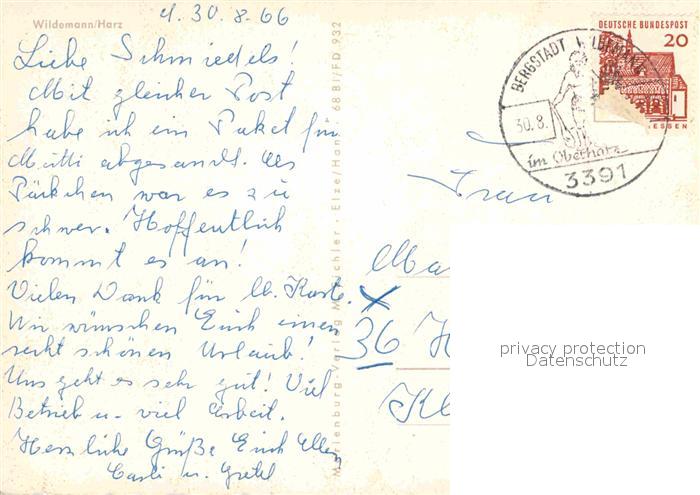 Wildemann/Harz
d. 30.8.66
Liebe Schmiedels!
Mit gleicher Post
habe ich ein Paket für
Mutti abgesandt. Als
Päckchen war es zu
schwer. Hoffentlich
kommt es an!
Vielen Dank für lb. Karte.
Wir wünschen Euch einen
recht schönen Urlaub!
Uns geht es sehr gut! Viel
Betrieb u. viel Arbeit.
Herzliche Grüße Euch Allen
u. Gretel
Verlag
68 BI/FD 932
DEUTSCHE BUNDESPOST
20
ESSEN
BERGSTADT WILDEMANN
30.8.
im Oberharz
3391
Frau
Ma
36 H
Kl
privacy protection
Datenschutz